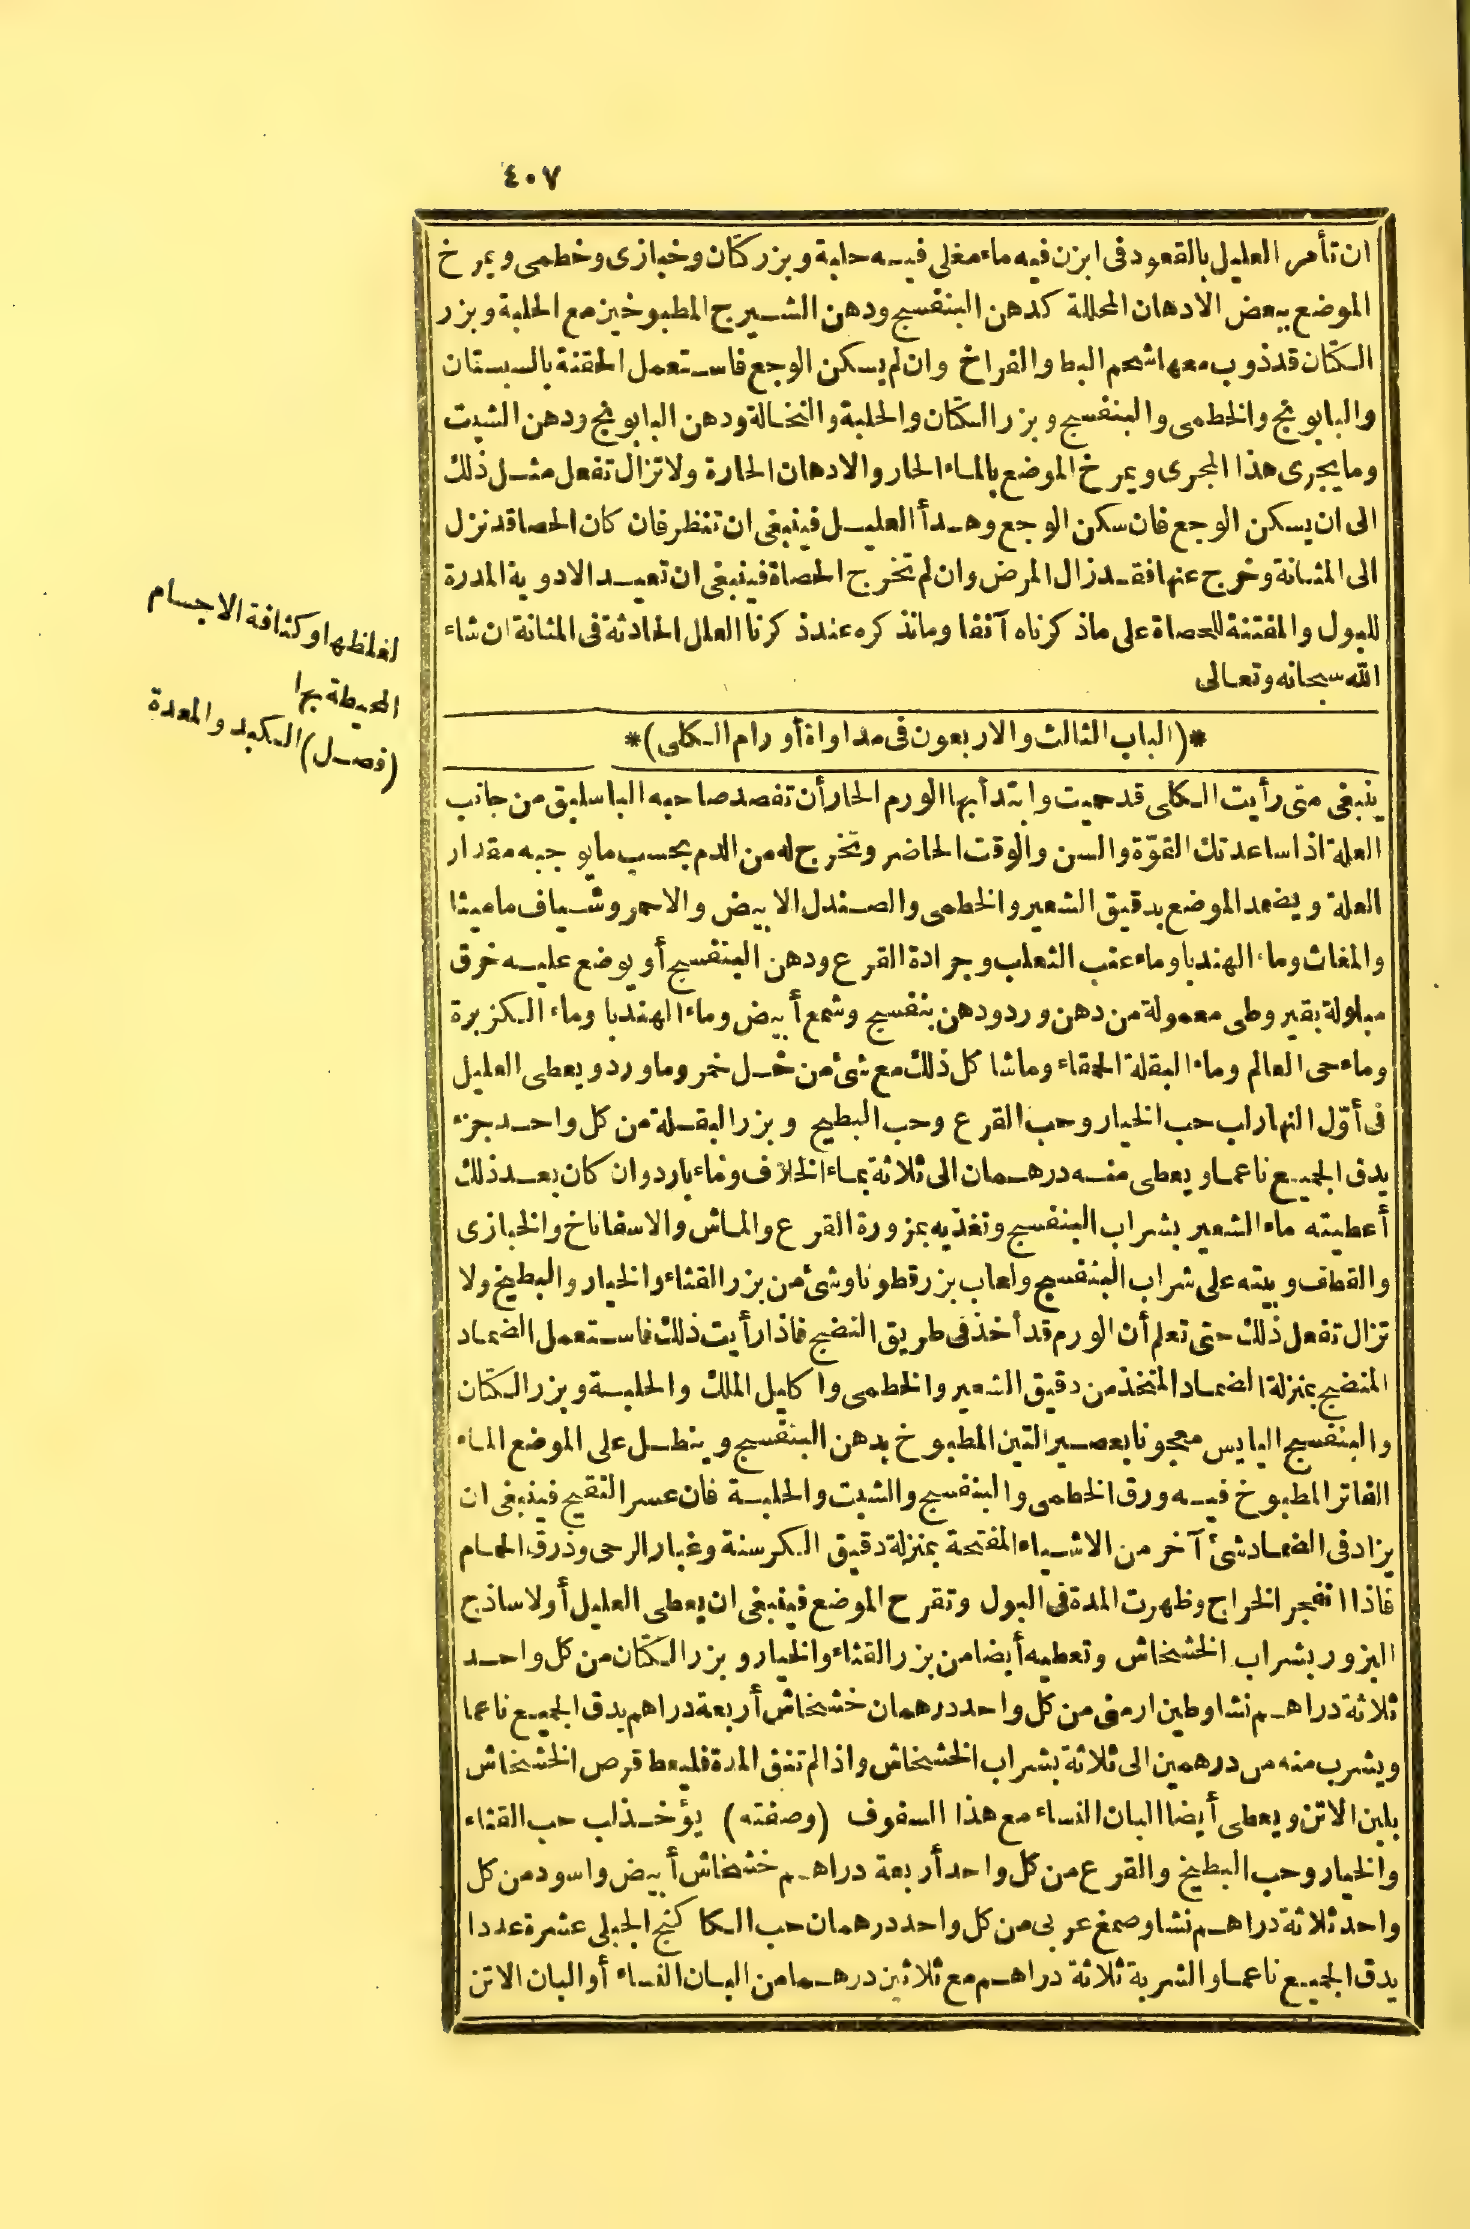 ٤٠٧
ان تأمر العليل بالقعود فى ابزن فيه ماء مغلى فيه حلبة وبزر كتان وخبازى وخطمى ويمرخ
الموضع ببعض الادهان المحللة كدهن البنفسج ودهن الشيرج المطبوخين مع الحلبة وبزر
الكتان قد ذوب معها شحم البط والفراخ وان لم يسكن الوجع فاستعمل الحقنة بالسبستان
والبابونج والخطمى والبنفسج وبزر الكتان والحلبة والنخالة ودهن البابونج ودهن الشبت
وما يجرى هذا المجرى ويمرخ الموضع بالماء الحار والادهان الحارة ولا تزال تفعل مثل ذلك
الى ان يسكن الوجع فان سكن الوجع وهدأ العليل فينبغى ان تنظر فان كان الحصا قد نزل
الى المثانة وخرج عنها فقد زال المرض وان لم تخرج الحصاة فينبغى ان تعيد الادوية المدرة
للبول والمفتتة للحصاة على ما ذكرناه آنفا وما نذكره عند ذكرنا العلل الحادثة فى المثانة ان شاء
الله سبحانه وتعالى
*(الباب الثالث والاربعون فى مداواة أورام الكلى)*
ينبغى متى رأيت الكلى قد حميت وابتدأ بها الورم الحار أن تفصد صاحبه الباسليق من جانب
العلة اذا ساعدتك القوّة والسن والوقت الحاضر وتخرج له من الدم بحسب ما يوجبه مقدار
العلة ويضمد الموضع بدقيق الشعير والخطمى والصندل الابيض والاحمر وشياف ماميثا
والمغاث وماء الهندبا وماء عنب الثعلب وجرادة القرع ودهن البنفسج أو يوضع عليه خرق
مبلولة بقيروطى معمولة من دهن ورد ودهن بنفسج وشمع أبيض وماء الهندبا وماء الكزبرة
وماء حى العالم وماء البقلة الحمقاء وماشا كل ذلك مع شئ من خل خمر وماورد ويعطى العليل
فى أوّل النهار لب حب الخيار وحب القرع وحب البطيخ وبزر البقلة من كل واحد جزء
يدق الجميع ناعما ويعطى منه درهمان الى ثلاثة بماء الخلاف وماء بارد وان كان بعد ذلك
أعطيته ماء الشعير بشراب البنفسج وتغذيه بمزورة القرع والماش والاسفاناخ والخبازى
والقطف وبيته على شراب البنفسج ولعاب بزرقطونا وشئ من بزر القثاء والخيار والبطيخ ولا
تزال تفعل ذلك حتى تعلم أن الورم قد أخذ فى طريق النضج فاذا رأيت ذلك فاستعمل الضماد
المنضج بمنزلة الضماد المتخذ من دقيق الشعير والخطمى واكليل الملك والحلبة وبزر الكتان
والبنفسج اليابس معجونا بعصير التين المطبوخ بدهن البنفسج وينطل على الموضع الماء
الفاتر المطبوخ فيه ورق الخطمى والبنفسج والشبت والحلبة فان عسر النقيح فينبغى ان
يزاد فى الضماد شئ آخر من الاشياء المفتحة بمنزلة دقيق الكرسنة وغبار الرحى وذرق الحمام
فاذا انفجر الخراج وظهرت المدة فى البول وتقرح الموضع فينبغى ان يعطى العليل أولا ساذج
البزور بشراب الخشخاش وتعطيه أيضا من بزر القثاء والخيار وبزر الكتان من كل واحد
ثلاثة دراهم نشا وطين ارمنى من كل واحد درهمان خشخاش أربعة دراهم يدق الجميع ناعما
ويشرب منه من درهمين الى ثلاثة بشراب الخشخاش واذا لم تنق المدة فليعط قرص الخشخاش
بلبن الاتن ويعطى أيضا البان النساء مع هذا السفوف (وصفته) يؤخذ لب حب القثاء
والخيار وحب البطيخ والقرع من كل واحد أربعة دراهم خشخاش أبيض واسود من كل
واحد ثلاثة دراهم نشا وصمغ عربى من كل واحد درهمان حب الكاكنج الجبلى عشرة عددا
يدق الجميع ناعما والشربة ثلاثة دراهم مع ثلاثين درهما من البان النساء أو البان الاتن
لغلظها وكثافة الاجسام
المحيطة بها
(فصل) الكبد والمعدة